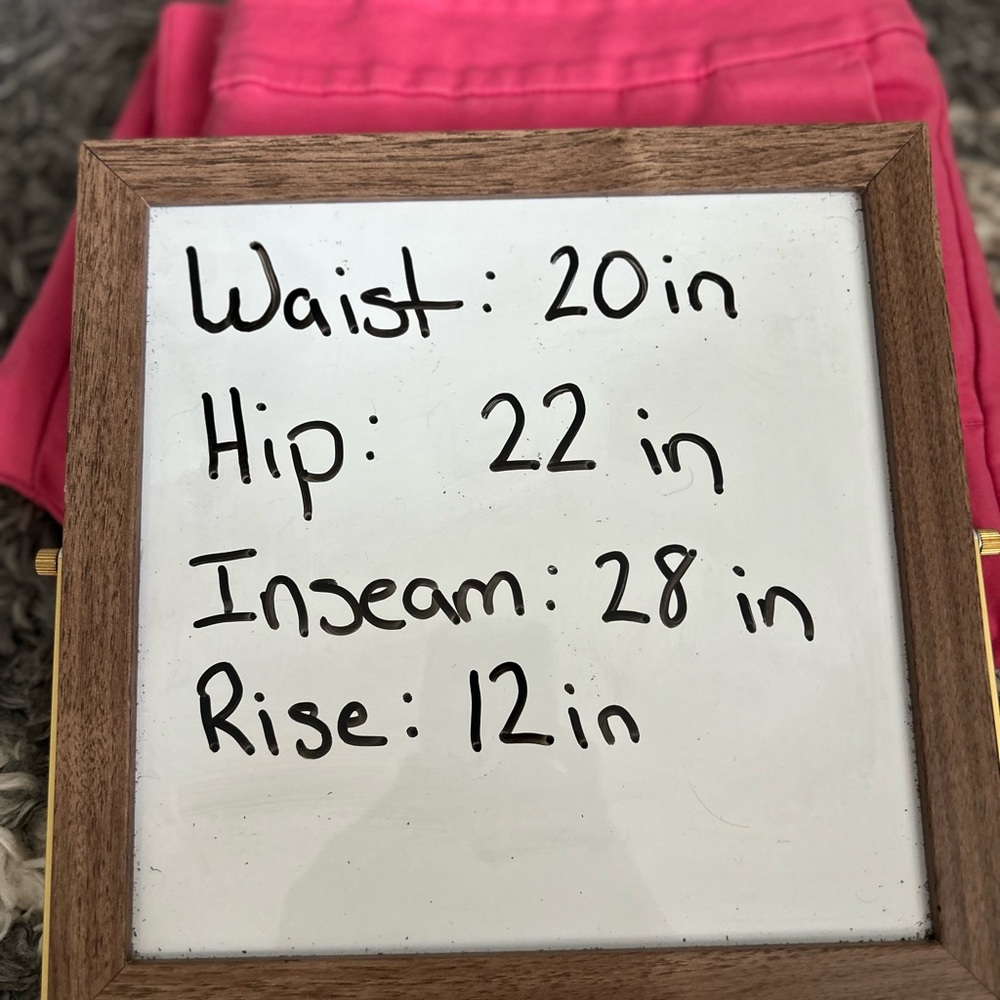 Waist: 20in
Hip: 22 in
Inseam: 28 in
Rise: 12in